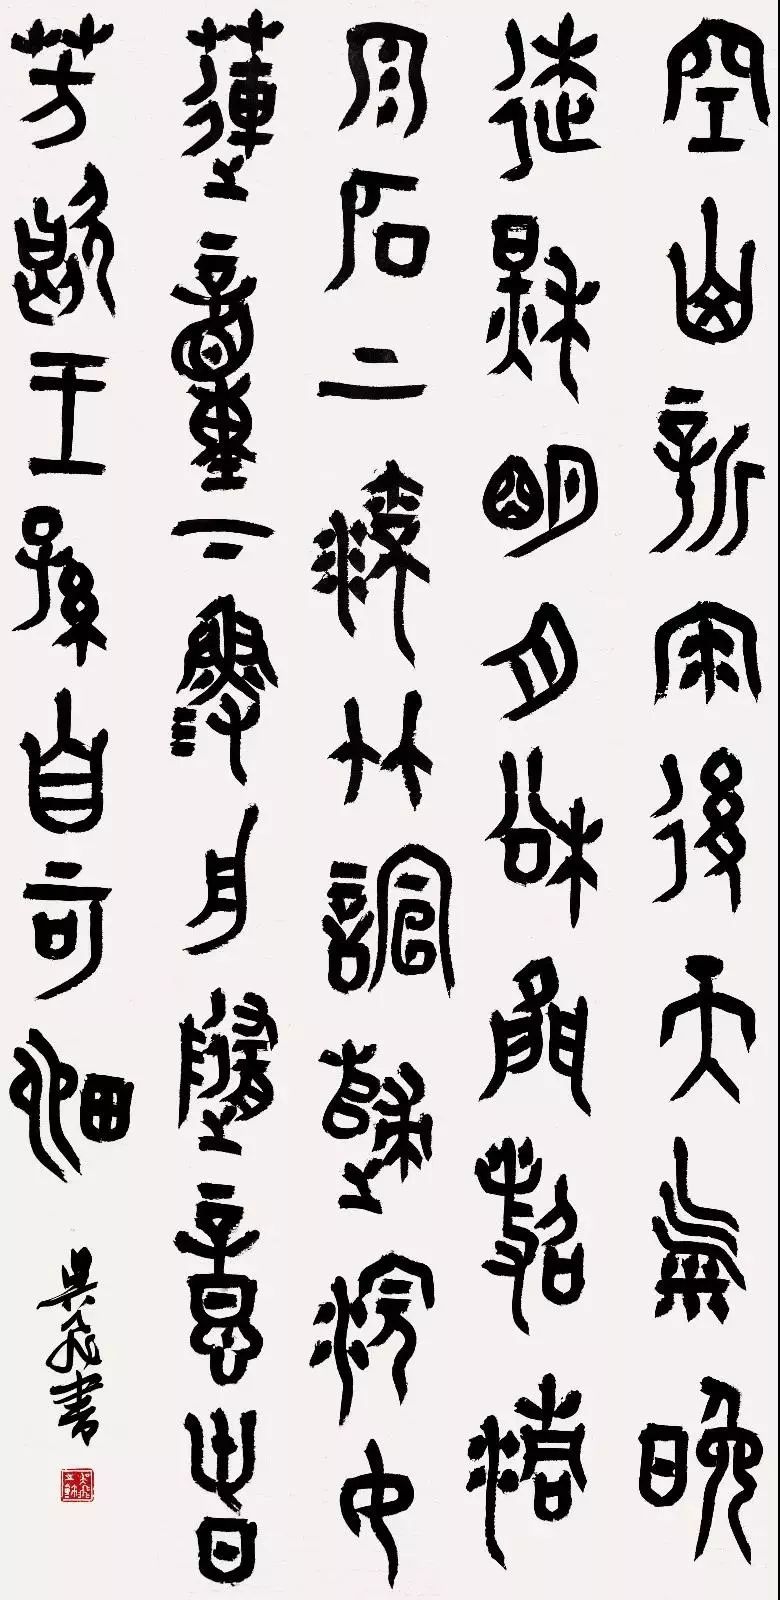 空山新雨後天氣晚
來秋明月松間照清
泉石上流竹喧歸浣女
蓮動下漁舟隨意春
芳歇王孫自可留
吳飛書